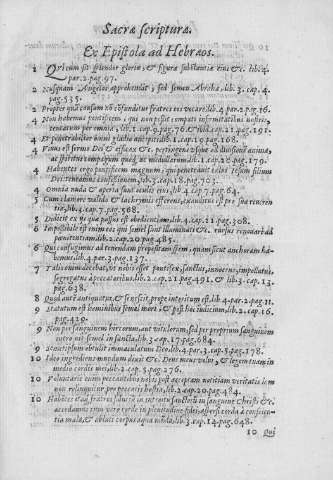 Sacræ scripturæ.
Ex Epistola ad Hebræos.
1 Qui cum sit splendor gloriæ, & figura substantiæ eius &c. lib. 4.
par. 2. pag. 97.
2 Nusquam Angelos apprehendit, sed semen Abrahæ, lib. 3. cap. 4.
pag. 535.
2 Propter quā causam nō cōfunditur fratres eos vocare, lib. 4. par. 2. pag. 16.
4 Non habemus pontificem, qui non possit compati infirmitatibus nostris,
tentatum per omnia, lib. 1. cap. 9. pag. 76. & ibid. cap. 21. pag. 191.
4 gladio ancipiti lib. 1. cap. 19. pag. 168.
4 Viuus est sermo Dei & efficax &c. pertingens vsque ad diuisionē animæ,
ac spiritus compagum quoq. ac medullarum lib. 1. cap. 18. pag. 179.
4 Habentes ergo pontificem magnum, qui penetrauit cælos Iesum filium
Dei teneamus confessionem, lib. 3. cap. 18. pag. 703.
4 Omnia nuda & aperta sunt oculis eius, lib. 4. cap. 7. pag. 64.
5 Cum clamore valido & lachrymis offerens, exauditus est pro sua reueren
tia, lib. 3. cap. 7. pag. 568.
5 Didicit ex ijs quæ passus est obedientiam, lib. 4. cap. 21. pag. 308.
6 Impossibile est enim eos qui semel sunt illuminati &c. rursus renouari ad
pænitentiam lib. 2. cap. 20. pag. 485.
6 Qui confugimus ad tenendam propositam spem, quam sicut anchoram ha-
bemus lib. 4. par. 3. pag. 137.
7 Talis enim decebat, vt nobis esset pontifex, sanctus, innocens, impollutus,
segregatus à peccatoribus, lib. 2. cap. 21. pag. 491. & lib. 3. cap. 13.
pag. 638.
8 Quod autē antiquatur, & senescit, prope interitum est lib. 4. par. 2. pag. 11.
9 Statutum est hominibus semel mori, & post hoc iudicium, lib. 2. cap. 16.
pag. 450.
9 Non per sanguinem hircorum, aut vitulorum, sed per proprium sanguinem
introiuit semel in sancta, lib. 3. cap. 17. pag. 684.
9 Semetipsum obtulit immaculatum Deo lib. 4. par. 3. cap. 5. pag. 178.
10 Ideo ingrediens mundum dixit &c. Deus meus volui, & legem tuam in
medio cordis mei, lib. 2. cap. 5. pag. 276.
10 Voluntarie enim peccantibus nobis post acceptam notitiam veritatis iam
non relinquitur pro peccatis hostia, lib. 2. cap. 20. pag. 484.
10 Habētes itaq. fratres fiduciā in introitu sanctorū in sanguine Christi &c.
accedamus cum vero corde in plenitudine fidei, aspersi corda à conscien-
tia mala, & abluti corpus aqua munda, lib. 3. cap. 14. pag. 648.
10 Qui